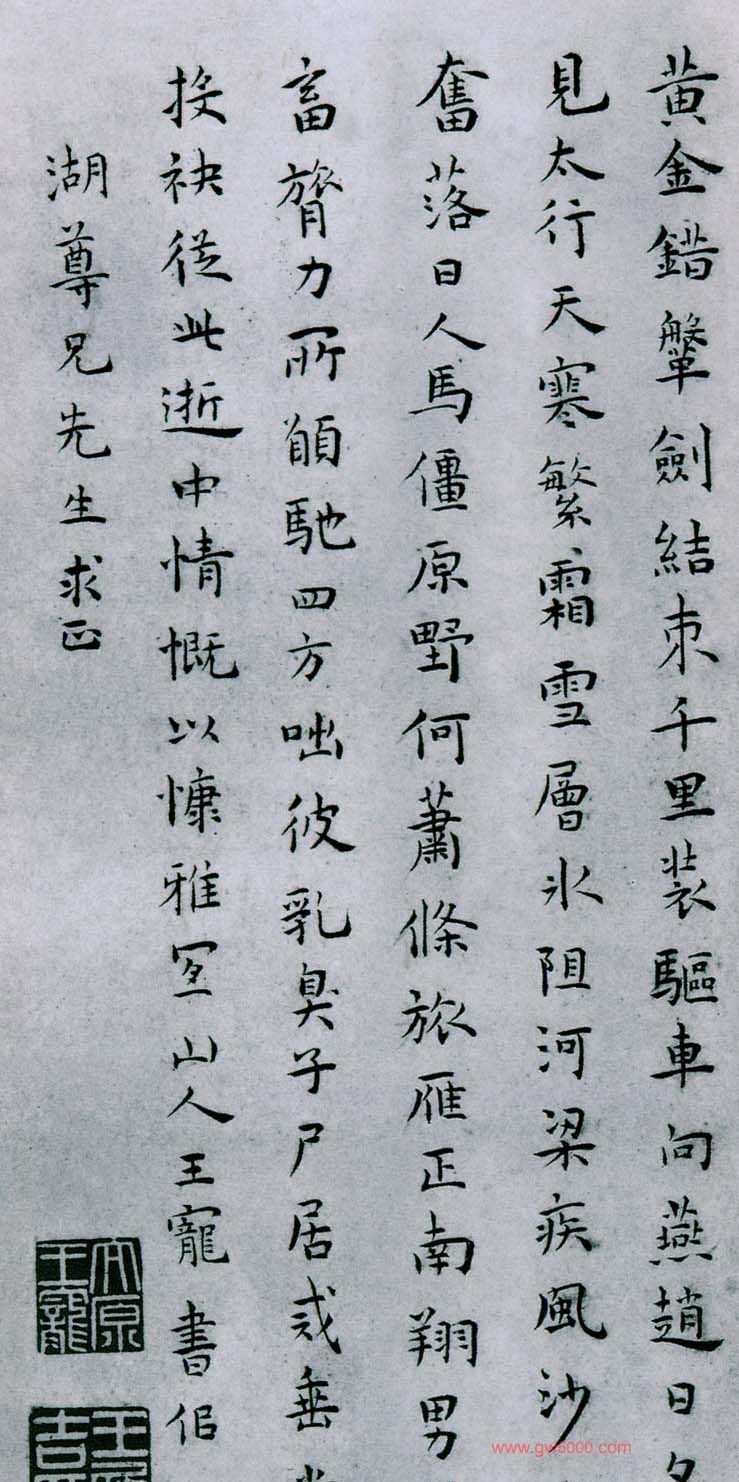 黃金錯鞶劍結束千里裝驅車向燕趙日夕
見太行天寒繁霜雪層冰阻河梁疾風沙
奮落日人馬僵原野何蕭條旅雁正南翔男
畜膂力所願馳四方咄彼乳臭子尸居戒垂堂
投袂從此逝中情慨以慷雅宜山人王寵書似
湖尊兄先生求正
太原王寵
www.gw5000.com